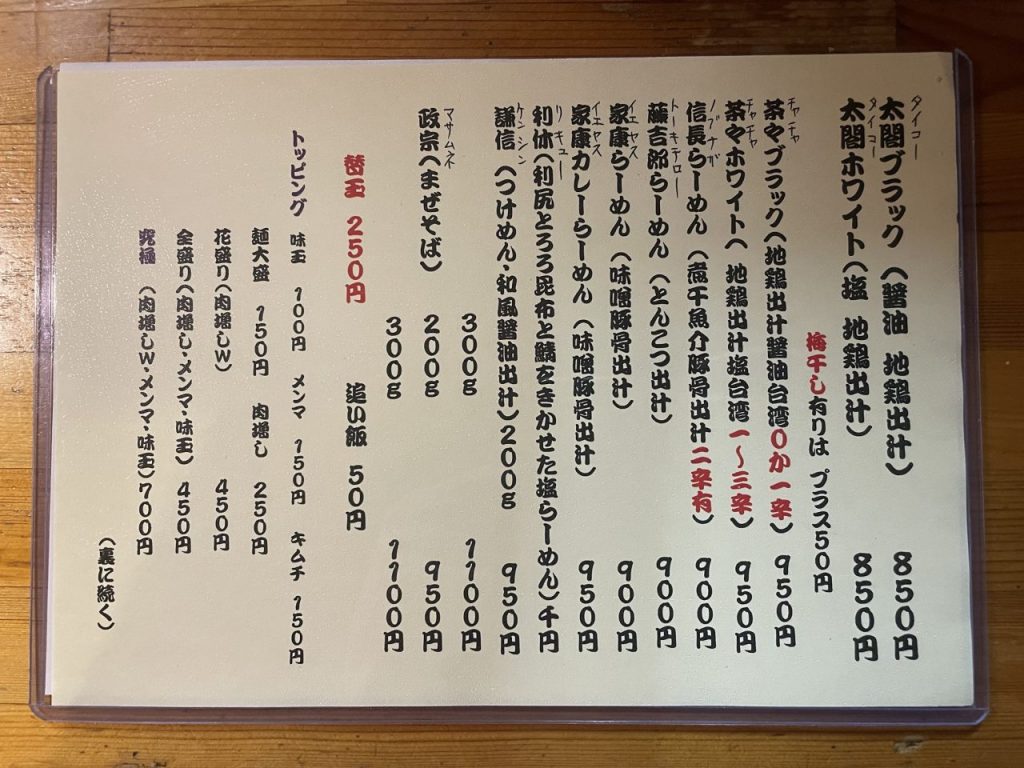 タイコー
太閤ブラック（醤油 地鶏出汁） 850円
タイコー
太閤ホワイト（塩 地鶏出汁） 850円
梅干し有りは プラス50円
チャチャ
茶々ブラック（地鶏出汁醤油台湾0か一辛） 950円
チャチャ
茶々ホワイト（ 地鶏出汁塩台湾一～三辛） 950円
ノブナガ
信長らーめん（煮干魚介豚骨出汁二辛有） 900円
トーキチロー
藤吉郎らーめん（とんこつ出汁） 900円
イエヤス
家康らーめん（味噌豚骨出汁） 900円
イエヤス
家康カレーらーめん（味噌豚骨出汁） 950円
リキュー
利休（利尻とろろ昆布と鯖をきかせた塩らーめん）千円
ケンシン
謙信（つけめん・和風醤油出汁）200g 950円
300g 1100円
マサムネ
政宗（まぜそば） 200g 950円
300g 1100円
替玉 250円 追い飯 50円
トッピング 味玉 100円 メンマ 150円 キムチ 150円
麺大盛 150円 肉増し 250円
花盛り（肉増しW） 450円
全盛り（肉増し・メンマ・味玉） 450円
究極 （肉増しW・メンマ・味玉）700円
（裏に続く）